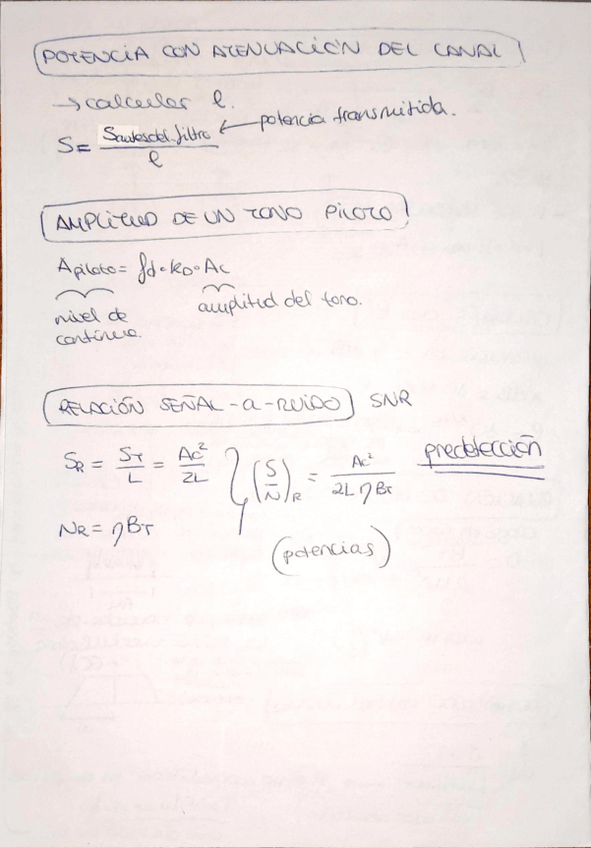 POTENCIA CON ATENUACIÓN DEL CANAL
→ calcular l.
S = Santes del filtro / l ← potencia transmitida.
AMPLITUD DE UN TONO PILOTO
Apiloto = fd · kD · Ac
nivel de continua. amplitud del tono.
RELACIÓN SEÑAL-a-RUIDO SNR
SR = ST / L = Ac² / 2L } (S/N)R = Ac² / 2L η BT predetección
NR = η BT
(potencias)